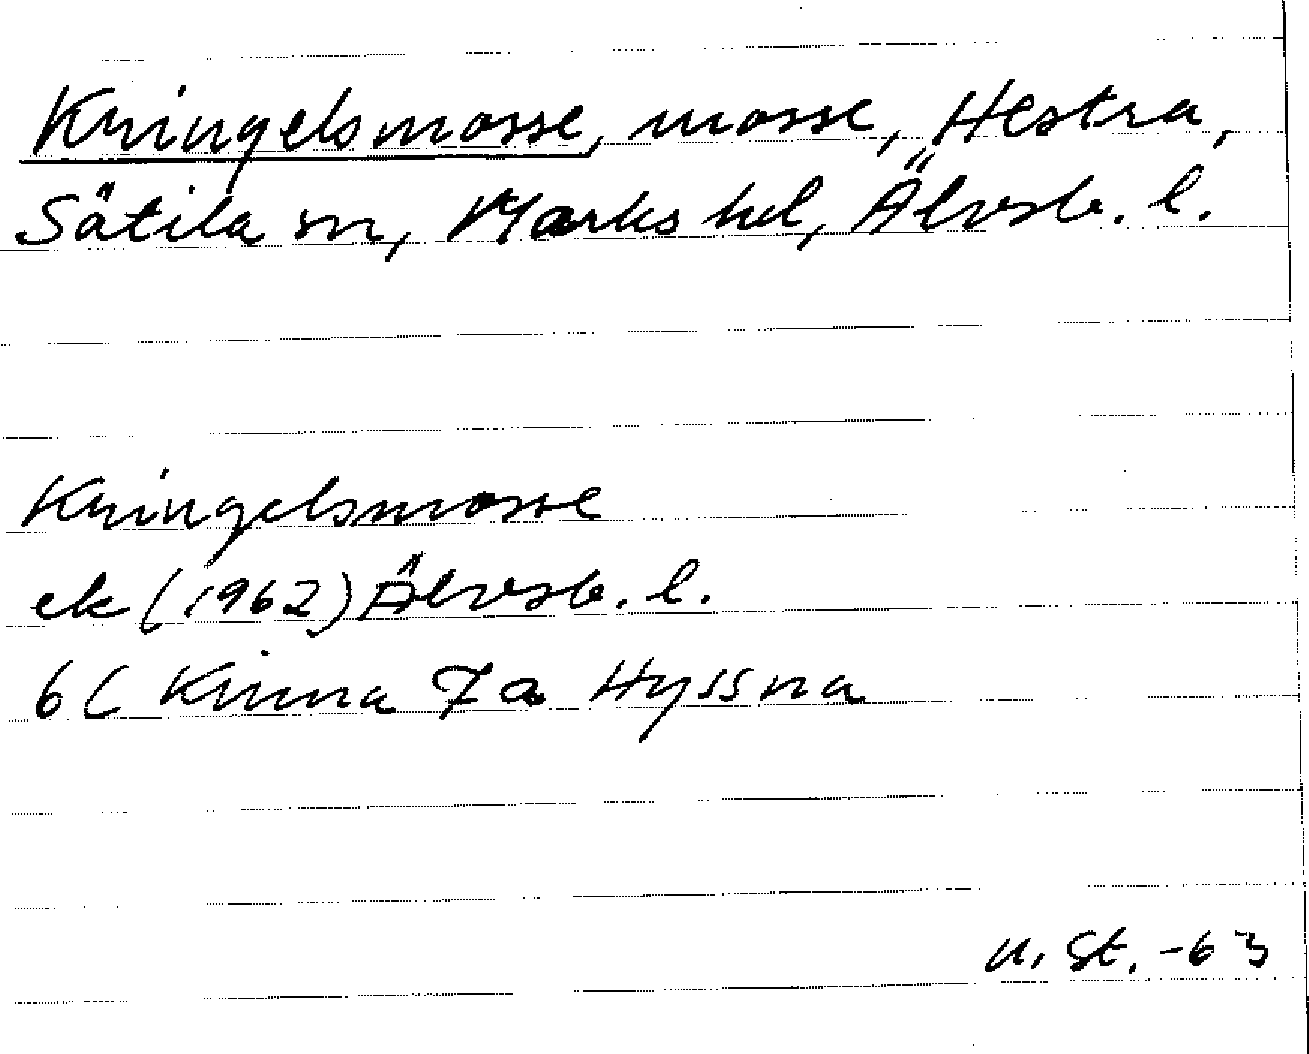 Kringelsmosse, mosse, Hestra,
Sätila sn, Marks hd, Älvsb. l.
Kringelsmosse
ek (1962) Älvsb. l.
6C Kinna 7a Hyssna
U. St. -63